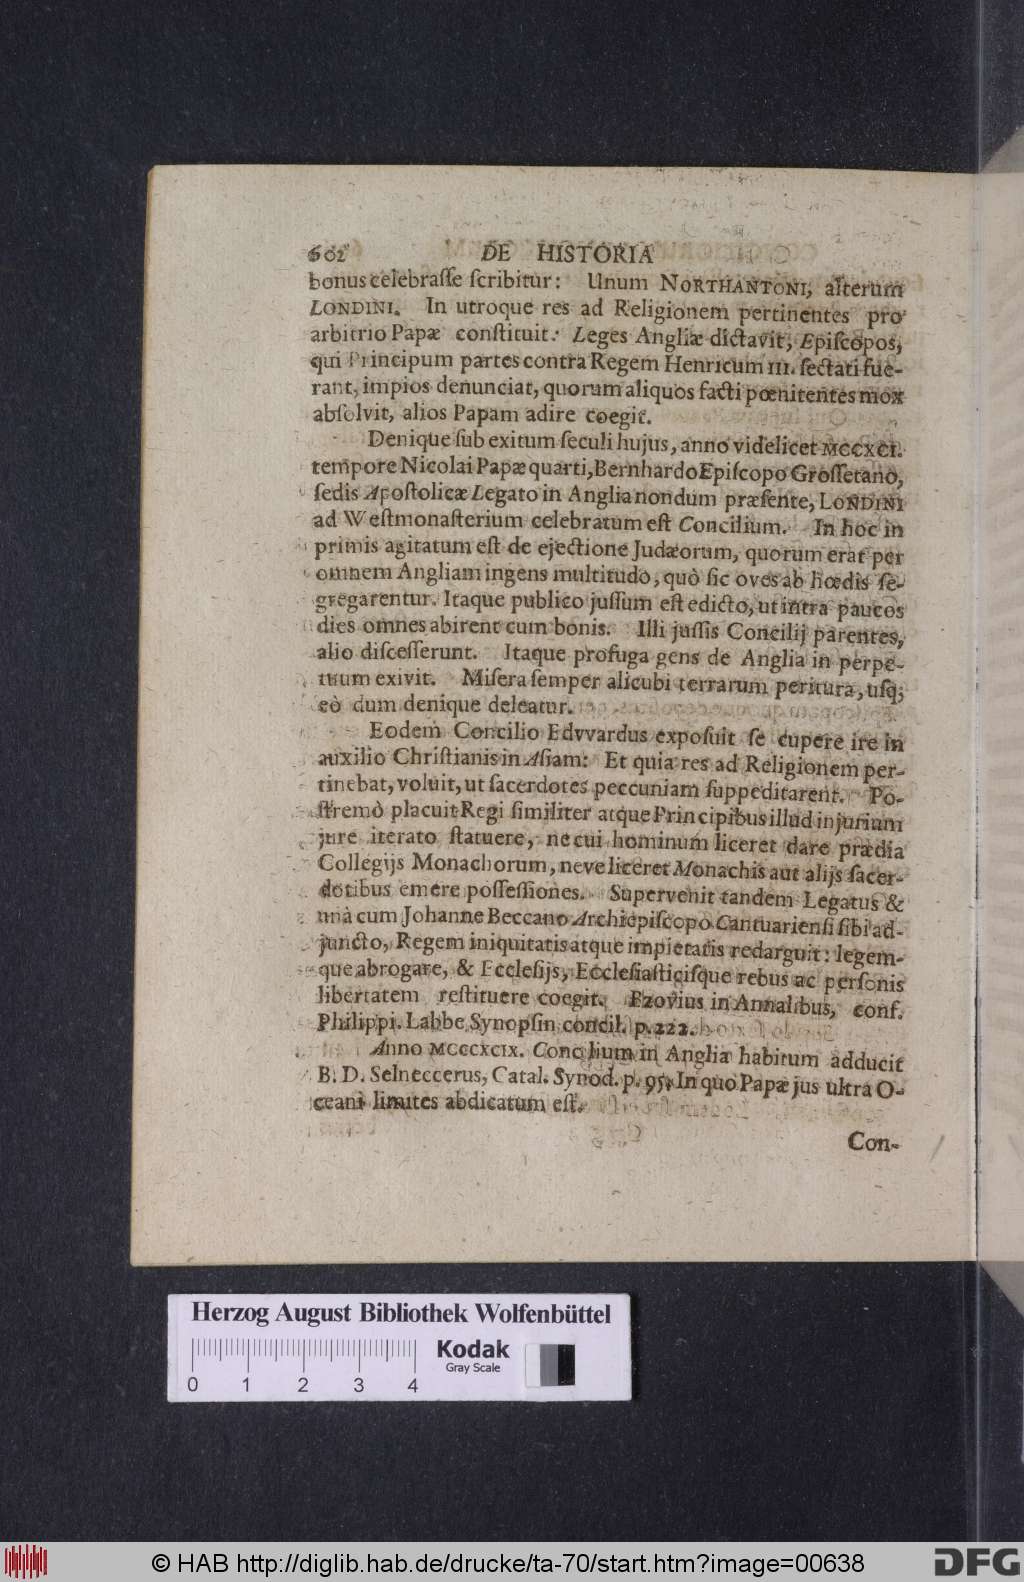 602 DE HISTORIA
bonus celebrasse scribitur: Unum NORTHANTONI, alterum
LONDINI. In utroque res ad Religionem pertinentes pro
arbitrio Papæ constituit: Leges Angliæ dictavit, Episcopos,
qui Principum partes contra Regem Henricum III. sectati fue-
rant, impios denunciat, quorum aliquos facti pœnitentes mox
absolvit, alios Papam adire coegit.
Denique sub exitum seculi hujus, anno videlicet MCCXCI.
tempore Nicolai Papæ quarti, Bernhardo Episcopo Grossetano,
sedis Apostolicæ Legato in Anglia nondum præsente, LONDINI
ad Westmonasterium celebratum est Concilium. In hoc in
primis agitatum est de ejectione Judæorum, quorum erat per
omnem Angliam ingens multitudo, quò sic oves ab hœdis se-
gregarentur. Itaque publico jussum est edicto, ut intra paucos
dies omnes abirent cum bonis. Illi jussis Concilij parentes,
alio discesserunt. Itaque profuga gens de Anglia in perpe-
tuum exivit. Misera semper alicubi terrarum peritura, usq;
eò dum denique deleatur.
Eodem Concilio Edvvardus exposuit se cupere ire in
auxilio Christianis in Asiam: Et quia res ad Religionem per-
tinebat, voluit, ut sacerdotes peccuniam suppeditarent. Po-
stremò placuit Regi similiter atque Principibus illud injurium
jure iterato statuere, ne cui hominum liceret dare prædia
Collegijs Monachorum, neve liceret Monachis aut alijs sacer-
dotibus emere possessiones. Supervenit tandem Legatus &
unà cum Johanne Beccano Archiepiscopo Cantuariensi sibi ad-
juncto, Regem iniquitatis atque impietatis redarguit: legem-
que abrogare, & Ecclesijs, Ecclesiasticisque rebus ac personis
libertatem restituere coegit. Bzovius in Annalibus, conf.
Philippi. Labbe Synopsin concil. p. 222.
Anno MCCCXCIX. Concilium in Anglia habitum adducit
B. D. Selneccerus, Catal. Synod. p. 95. In quo Papæ jus ultra O-
ceani limites abdicatum est.
Con-
Herzog August Bibliothek Wolfenbüttel
Kodak
Gray Scale
0 1 2 3 4
© HAB http://diglib.hab.de/drucke/ta-70/start.htm?image=00638
DFG